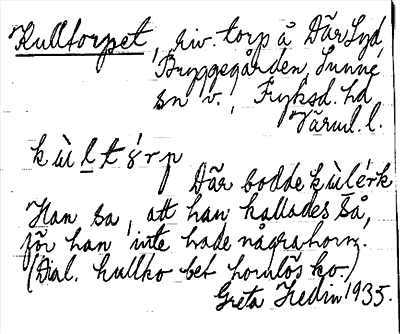 Kulltorpet, riv. torp å Där Syd,
Bryggegården, Sunne
sn v., Fryksd. hd,
Värml. l.
kùl̠tórp
Där bodde kùlérk
Han sa, att han kallades så,
för han inte hade några horn.
(Dial. kullko bet hornlös ko.)
Greta Hedin 1935.